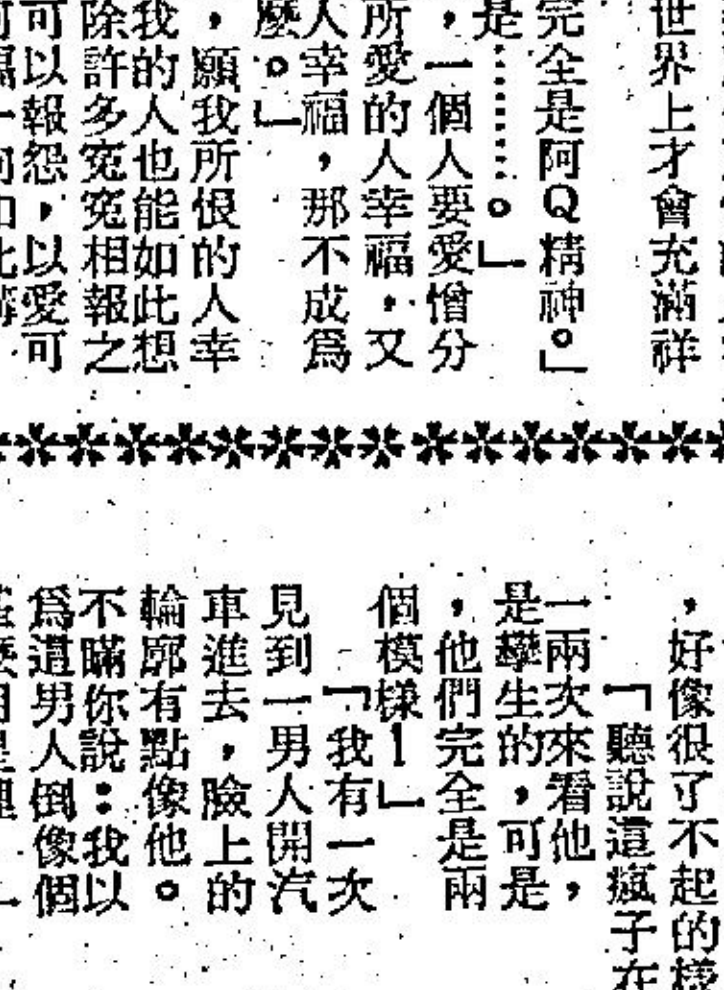 世界上才會充滿祥
完全是阿Q精神。」
是⋯⋯。」
，一個人要愛憎分
所愛的人幸福，又
人幸福，那不成爲
麼。」
，願我所恨的人幸
我的人也能如此想
除許多冤冤相報之
可以報怨，以愛可
，好像很了不起的樣
「聽說這瘋子在
一兩次來看他，
是孿生的，可是
，他們完全是兩
個模樣！」
「我有一次
見到一男人開汽
車進去，臉上的
輪廓有點像他。
不瞞你說：我以
爲這男人倒像個